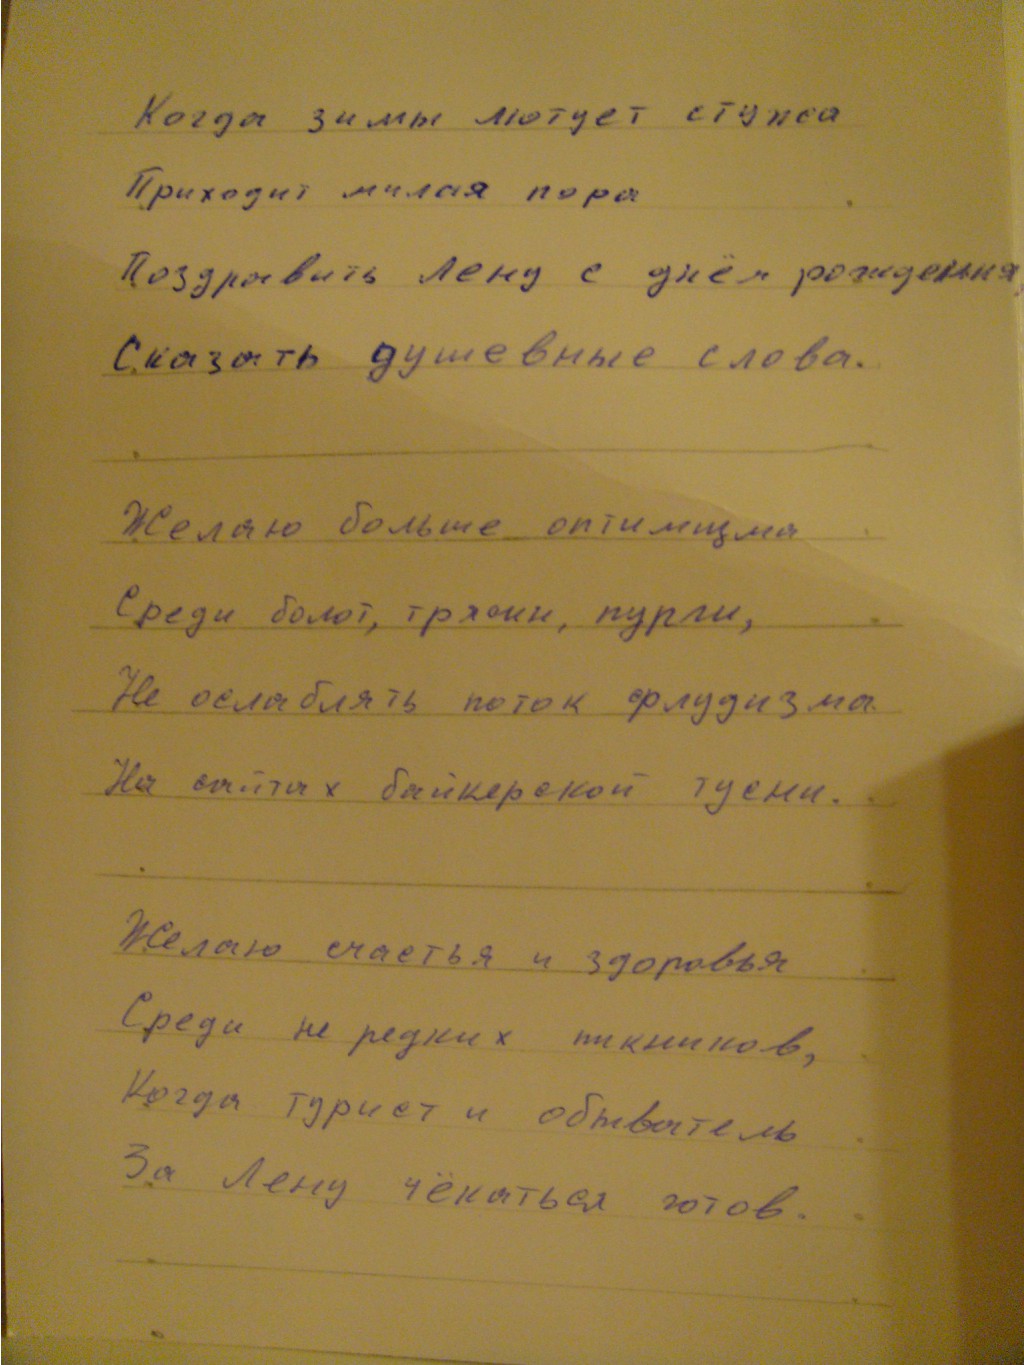 Когда зимы лютует стужа
Приходит милая пора
Поздравить Лену с днём рожденья,
Сказать душевные слова.
Желаю больше оптимизма
Среди болот, трясин, пурги,
Не ослаблять поток флудизма
На сайтах байкерской тусни.
Желаю счастья и здоровья
Среди не редких пикников,
Когда турист и обыватель
За Лену чёкаться готов.